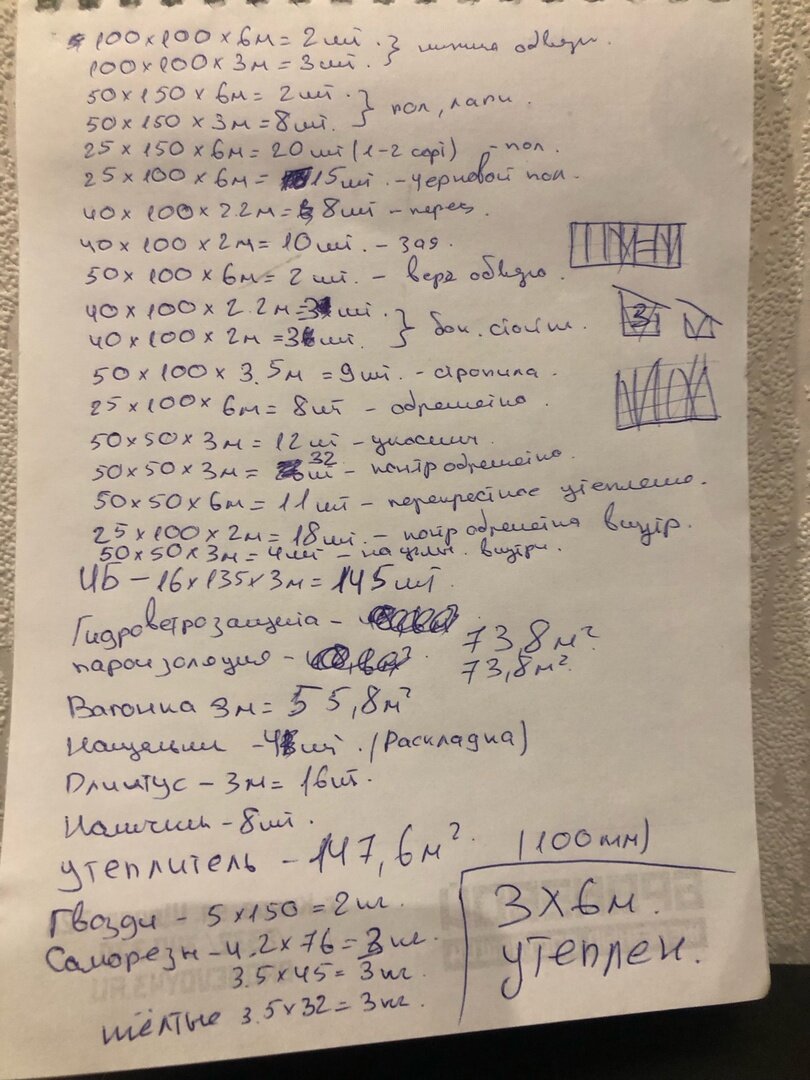 100×100×6м = 2шт.
100×100×3м = 3шт. } нижня обвязк.
50×150×6м = 2шт.
50×150×3м = 8шт. } пол, лаги.
25×150×6м = 20шт (1-2 сорт) - пол.
25×100×6м = 15шт. - черновой пол.
40×100×2.2м = 8шт - перед.
40×100×2м = 10шт. - зад.
50×100×6м = 2шт. - верх обвязк.
40×100×2.2м = шт.
40×100×2м = шт. } бок. стойки.
3
50×100×3.5м = 9шт. - стропила.
25×100×6м = 8шт - обрешетка.
50×50×3м = 12шт - укосин.
50×50×3м = 32 шт - контробрешетка.
50×50×6м = 11шт - перекрестное утепление.
25×100×2м = 18шт. - контр обрешетка внутр.
50×50×3м = 4шт - на углы. внутри.
ИБ - 16×135×3м = 145шт.
Гидроветрозащита - 73,8м²
пароизоляция - 73,8м².
Вагонка 3м = 55,8м²
Нащельник - шт. (Раскладка)
Плинтус - 3м = 16шт.
Наличник - 8шт.
утеплитель - 147,6м². (100мм)
Гвозди - 5×150 = 2кг.
Саморезы - 4.2×76 = 3кг.
3.5×45 = 3кг.
жёлтые 3.5×32 = 3кг.
3×6м.
утеплен.